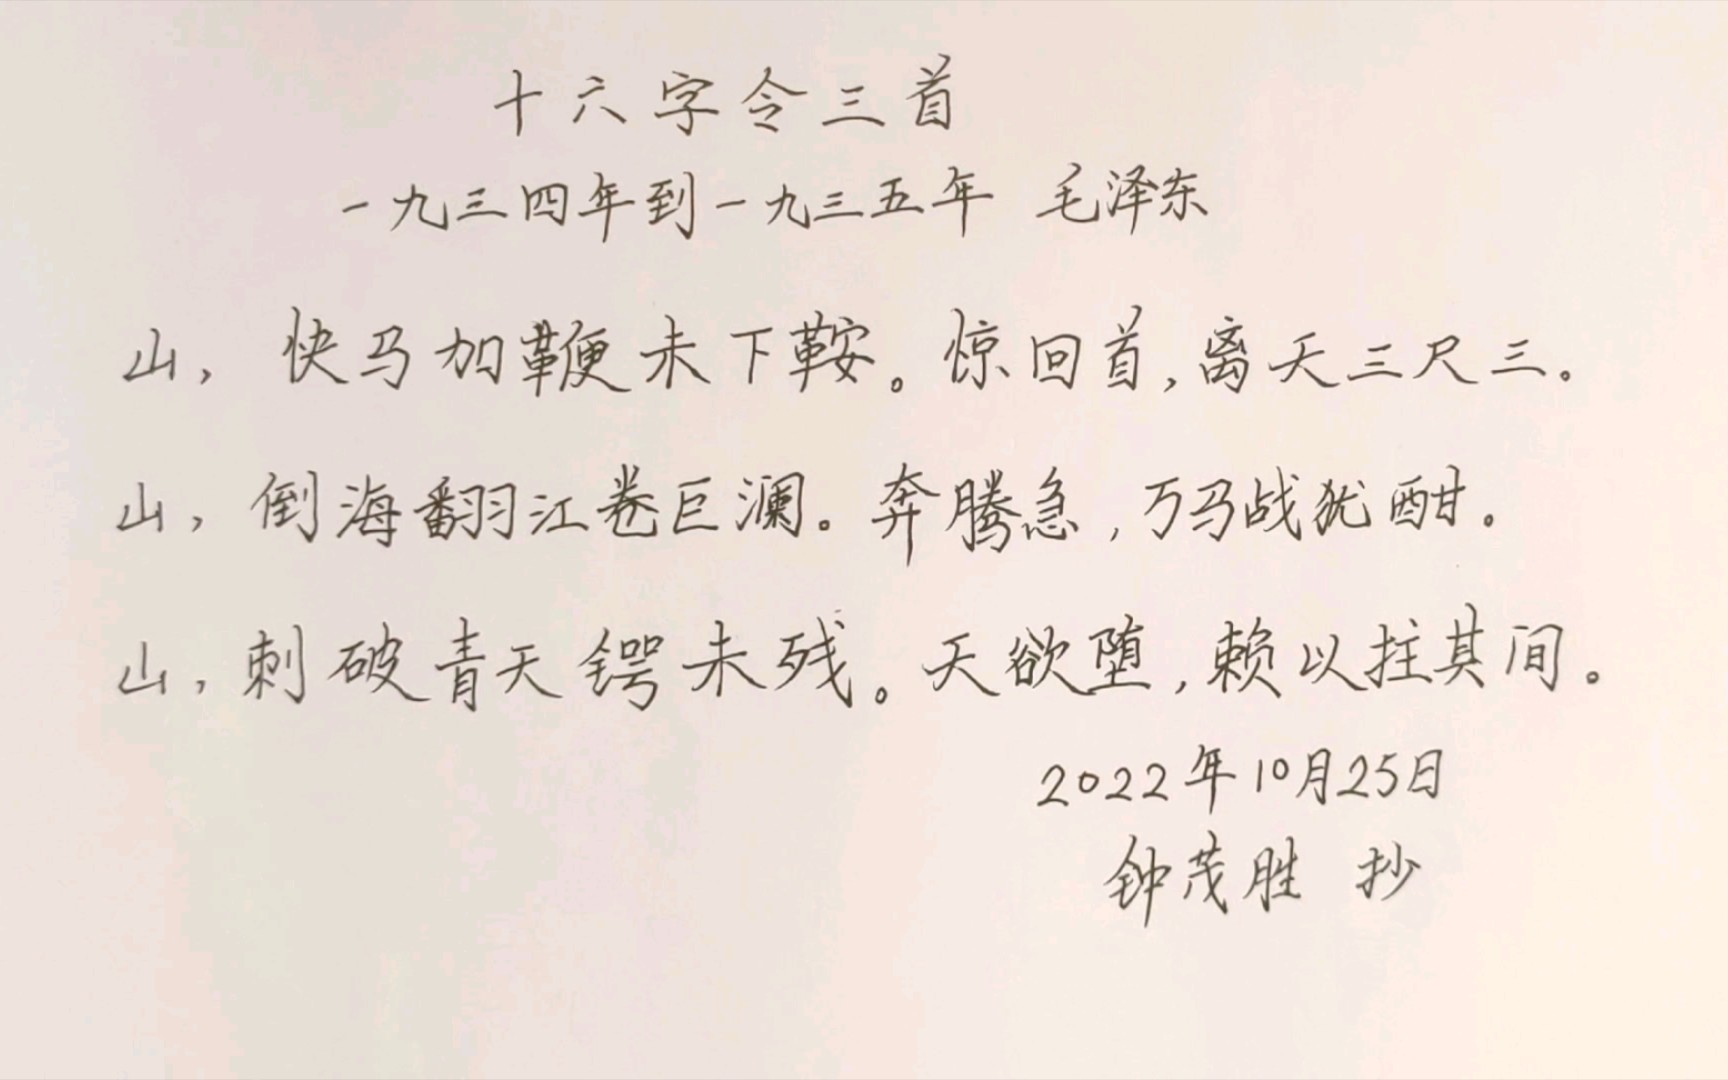 十六字令三首
一九三四年到一九三五年 毛泽东
山，快马加鞭未下鞍。惊回首，离天三尺三。
山，倒海翻江卷巨澜。奔腾急，万马战犹酣。
山，刺破青天锷未残。天欲堕，赖以拄其间。
2022年10月25日
钟茂胜 抄